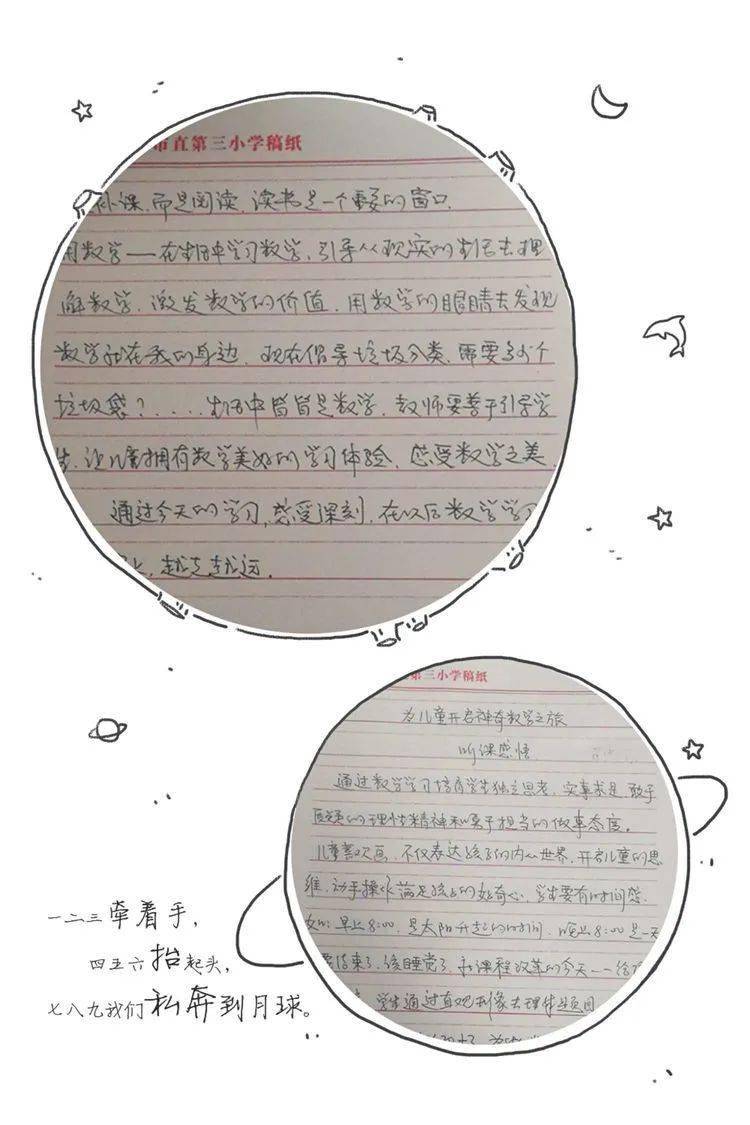 市直第三小学稿纸
补课,而是阅读,读书是一个重要的窗口.
用数学——在生活中学习数学,引导从现实的生活去理
解数学,激发数学的价值,用数学的眼睛去发现
数学就在我的身边,现在倡导垃圾分类,需要多少个
垃圾袋?....生活中皆皆是数学,教师要善于引导学
生,让儿童拥有数学美好的学习体验,感受数学之美.
通过今天的学习,感受深刻,在以后数学学习
上,越走越远.
第三小学稿纸
为儿童开启神奇数学之旅
听课感悟
通过数学学习培育学生独立思考,实事求是,敢于
质疑的理性精神和勇于担当的做事态度.
儿童喜欢画,不仅表达孩子的内心世界,开启儿童的思
维,动手操作满足孩子的好奇心,学生要有时间感.
如:早上8:00,是太阳升起的时间,晚上8:00是一天
要结束了,该睡觉了,和课程改革的今天
学生通过直观到象去理解
一二三牵着手,
四五六抬起头,
七八九我们私奔到月球。